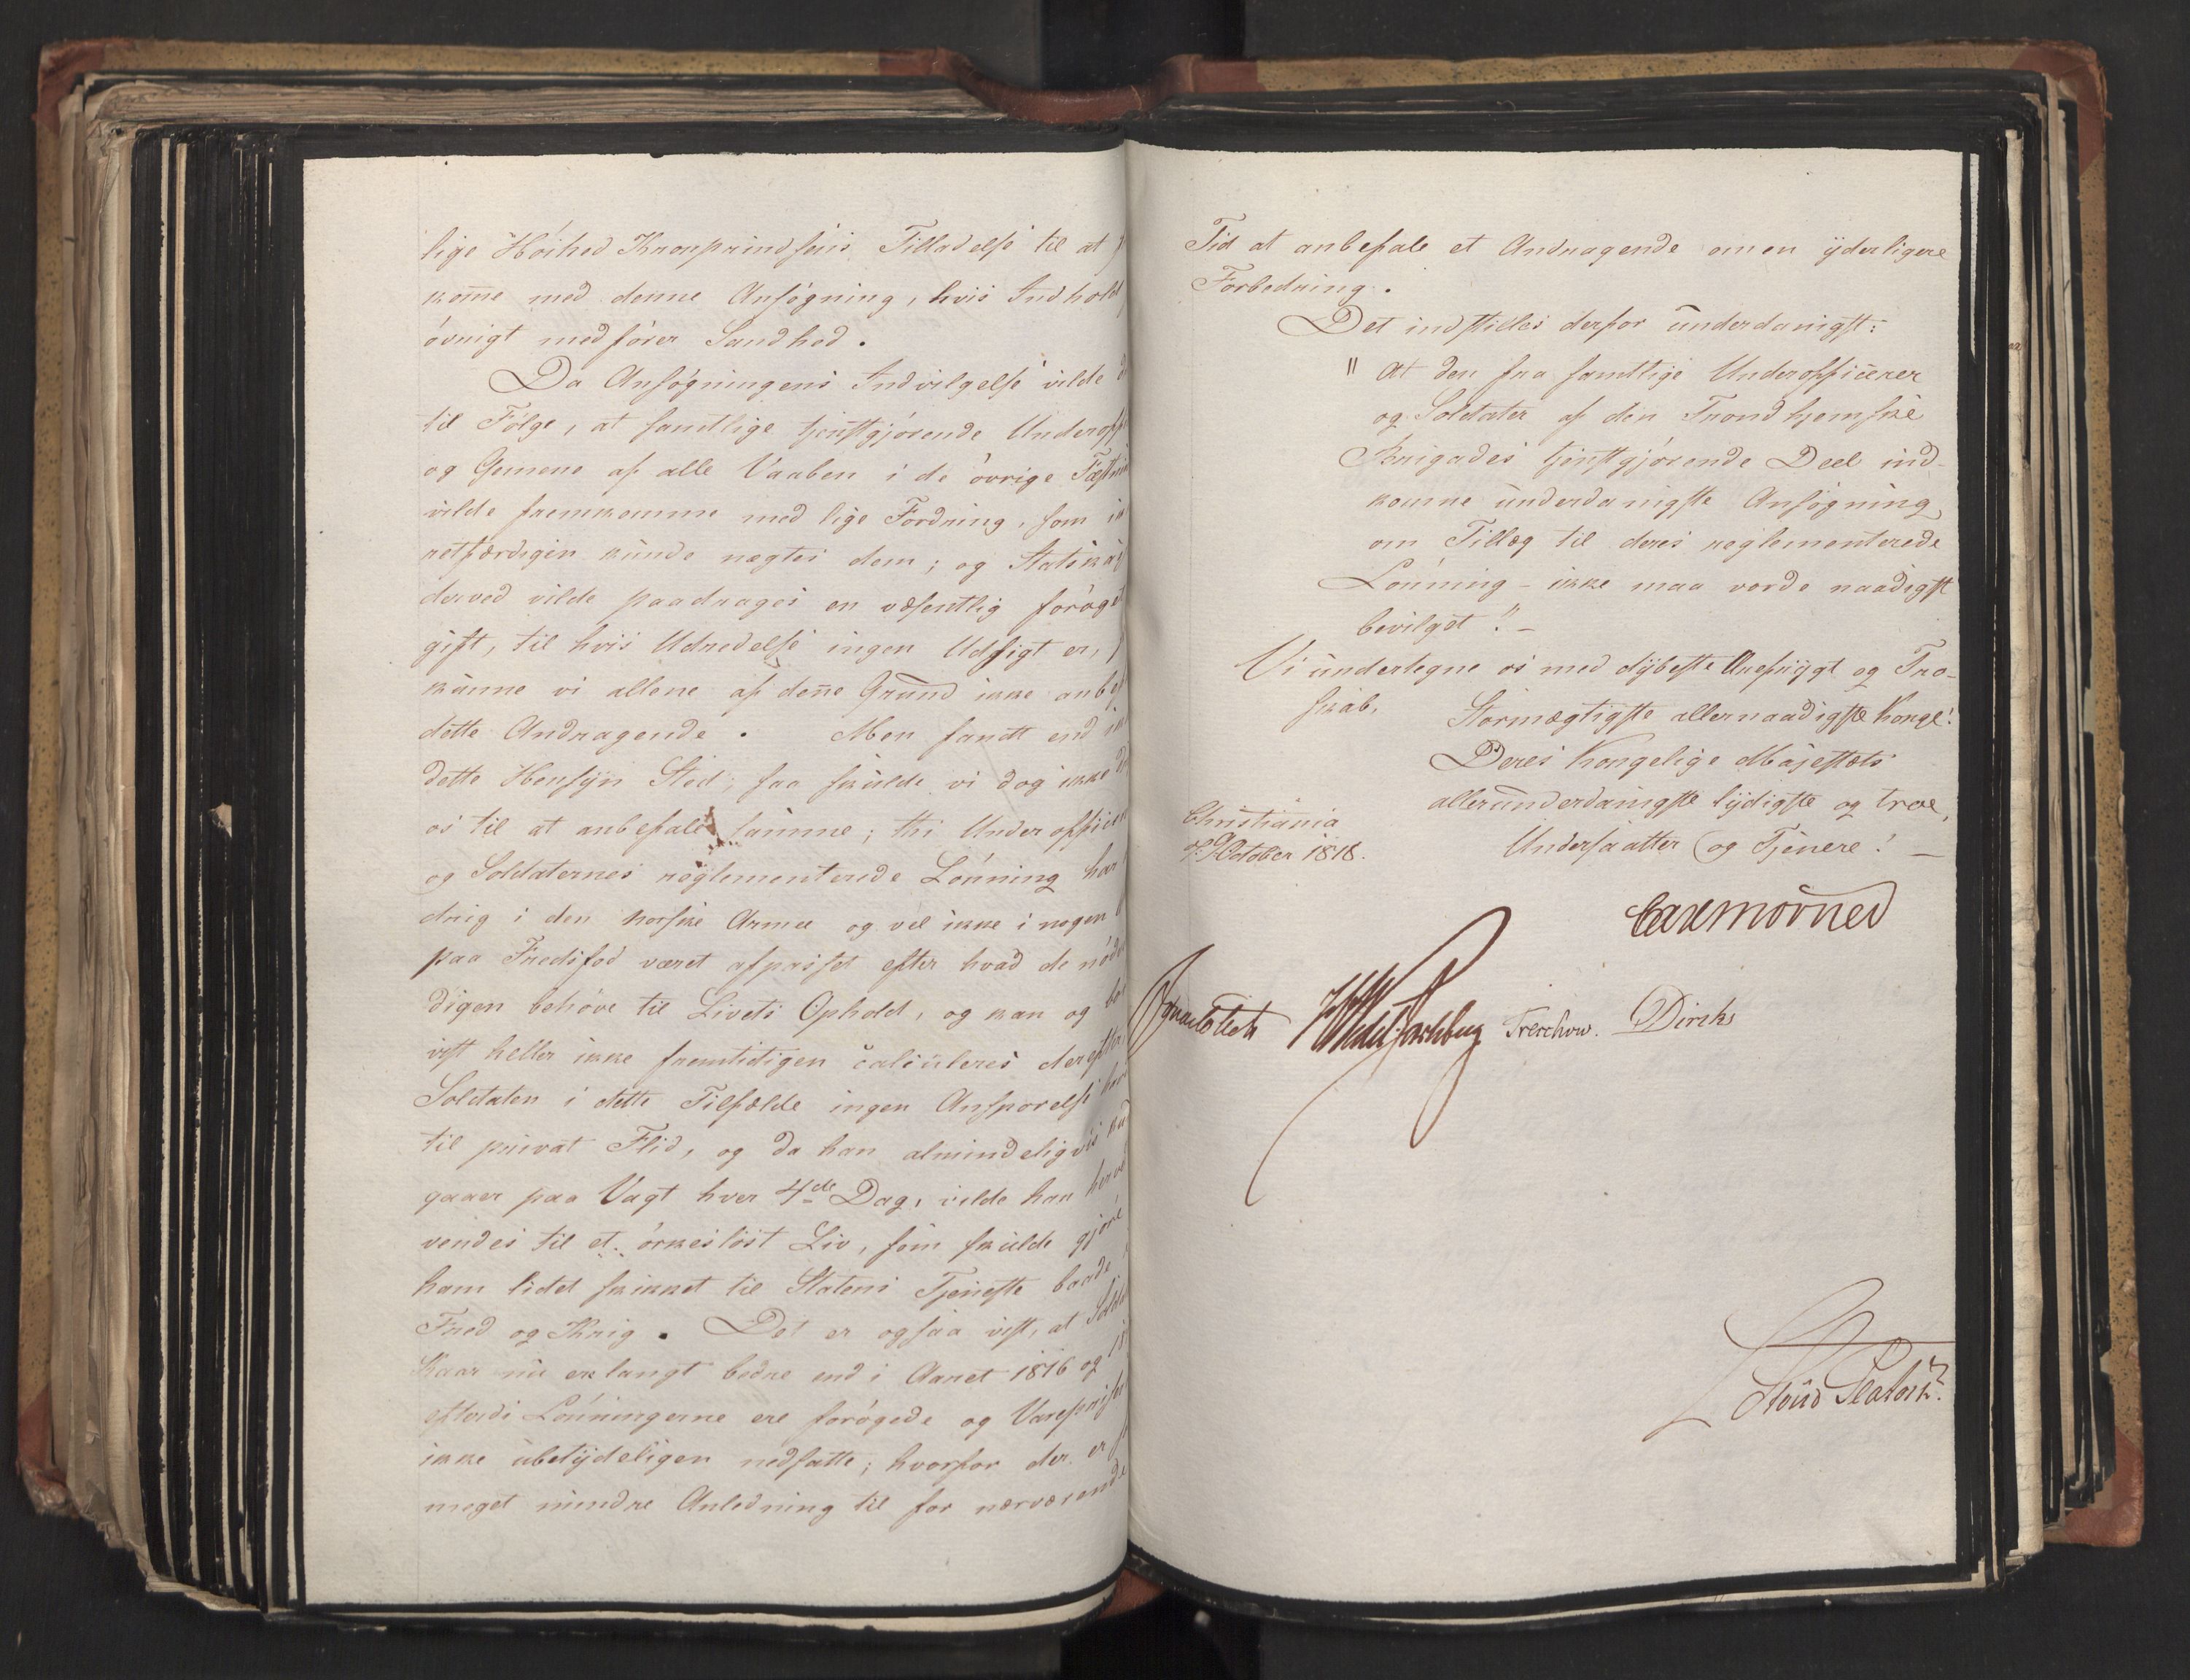 lige Höihed Kronprindsens Tilladelse til at
komme med denne Ansögning, hvis Indhold
övrigt medförer Sandhed.
Da Ansögningens Indvilgelse vilde
til Fölge, at samtlige tjenstgjörende Underoff
og Gemene af alle Vaaben i de övrige Fæstni
vilde fremkomme med lige Fordring, som ik
retfærdigen kunde nægtes dem; og Statskas
derved vilde paadrages en væsentlig foröget
gift, til hvis Udredelse ingen Udsigt er,
kunne vi allene af denne Grund ikke anbef
dette Andragende. Men fandt end ik
dette Hensyn Sted, saa skulde vi dog ikke
os til at anbefale samme; thi Underofficer
og Soldaternes reglementerede Lönning har
drig i den norske Armee og vel ikke i nogen
paa Fredsfod været afpasset efter hvad de nöd
digen behöve til Livets Ophold, og kan og bör
vist heller ikke fremtidigen calculeres derefter
Soldaten i dette Tilfælde ingen Ansporelse hav
til privat Flid, og da han almindeligviis kun
gaaer paa Vagt hver 4de Dag, vilde han herved
vendes til et örkeslöst Liv, som skulde gjöre
ham lidet skikket til Statens Tjeneste baade
Fred og Krig. Det er ogsaa vist, at Solda
Kaar nu er langt bedre end i Aaret 1816 og 18
efterdi Lönningerne ere forögede og Varepriser
ikke ubetydeligen nedsatte; hvorfor der er
meget mindre Anledning til for nærværende
Tid at anbefale et Andragende om en yderligere
Forbedring.
Det indstilles derfor underdanigst:
"At den fra samtlige Underofficerer
og Soldater af den Trondhjemske
Brigades tjenstgjörende Deel ind-
komne underdanigste Ansögning
om Tillæg til deres reglementerede
Lönning - ikke maa vorde naadigst
bevilget"! -
Vi undertegne os med dybeste Ærefrygt og Tro-
skab,
Stormægtigste allernaadigste Konge!
Deres Kongelige Majestæts
allerunderdanigste lydigste og troe,
Undersaatter og Tjenere! -
Christiania
October 1818.
Carl Mörner
Treschow. Diriks